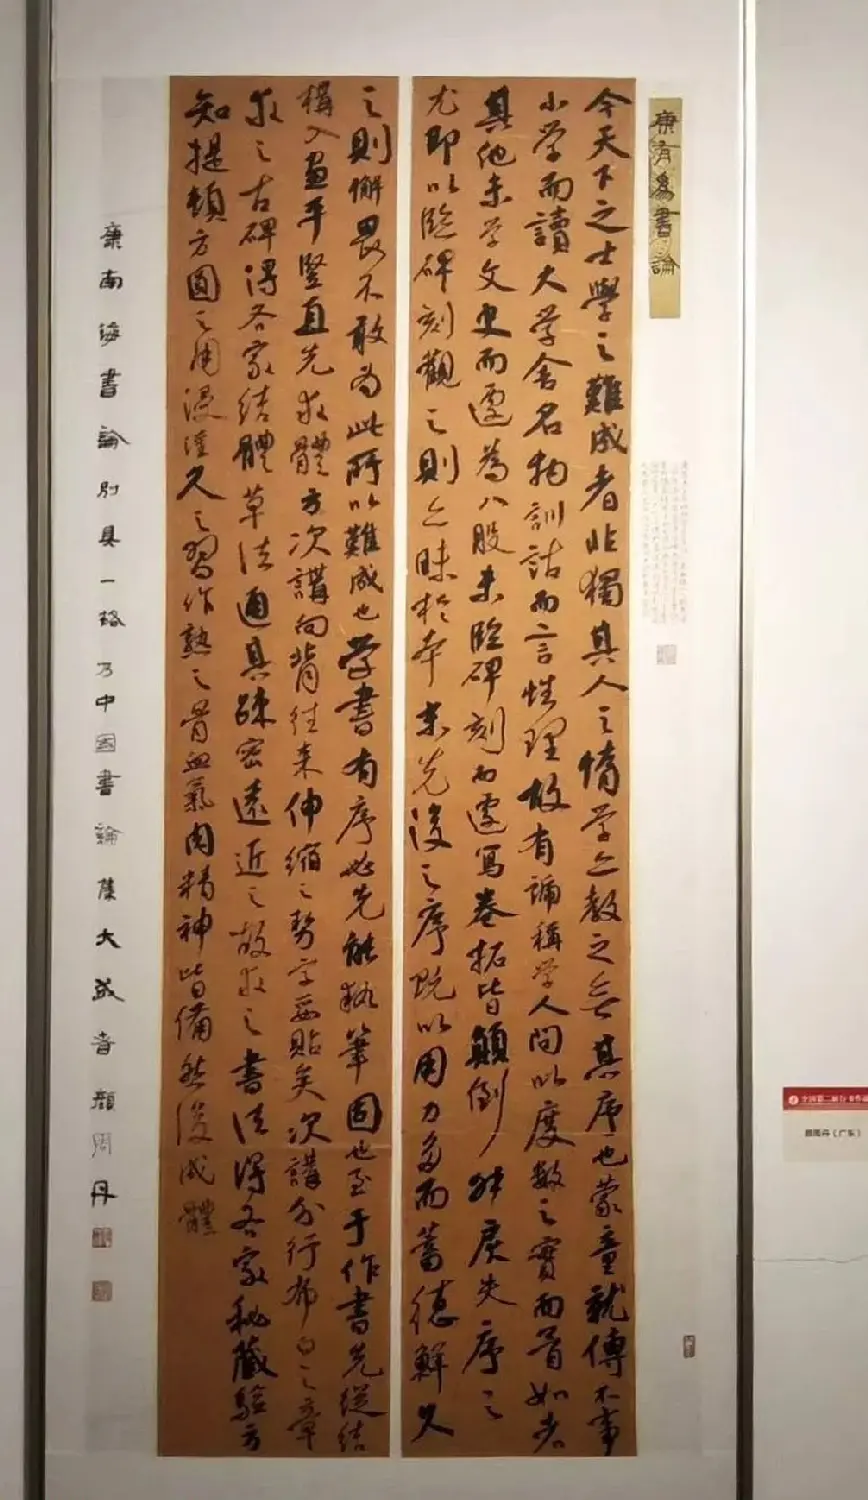 康有為書論
今天下之士學之難成者非獨其人之惰学亦教之无其序也蒙童就傅不事
小学而讀大学舍名物訓詁而言性理故有誦稱学人問以度數之實而瞢如者
其他未学文史而遽為八股未臨碑刻而遽寫卷拓皆顛倒舛戾失序之
尤即以臨碑刻觀之則亦昧於本末先後之序既以用力多而蓄德鮮久
之則懈畏不敢為此所以難成也学書有序必先能執筆固也至于作書先從結
構入畫平豎直先求體方次講向背往来伸縮之勢字妥貼矣次講分行布白之章
求之古碑得各家結體草法通其疎密遠近之故求之書法得各家秘藏驗方
知提頓方圓之用浸淫久之習作熟之骨血氣肉精神皆備然後成體
康南海書論別具一格乃中國書論集大成者顏周丹
颜周丹（广东）